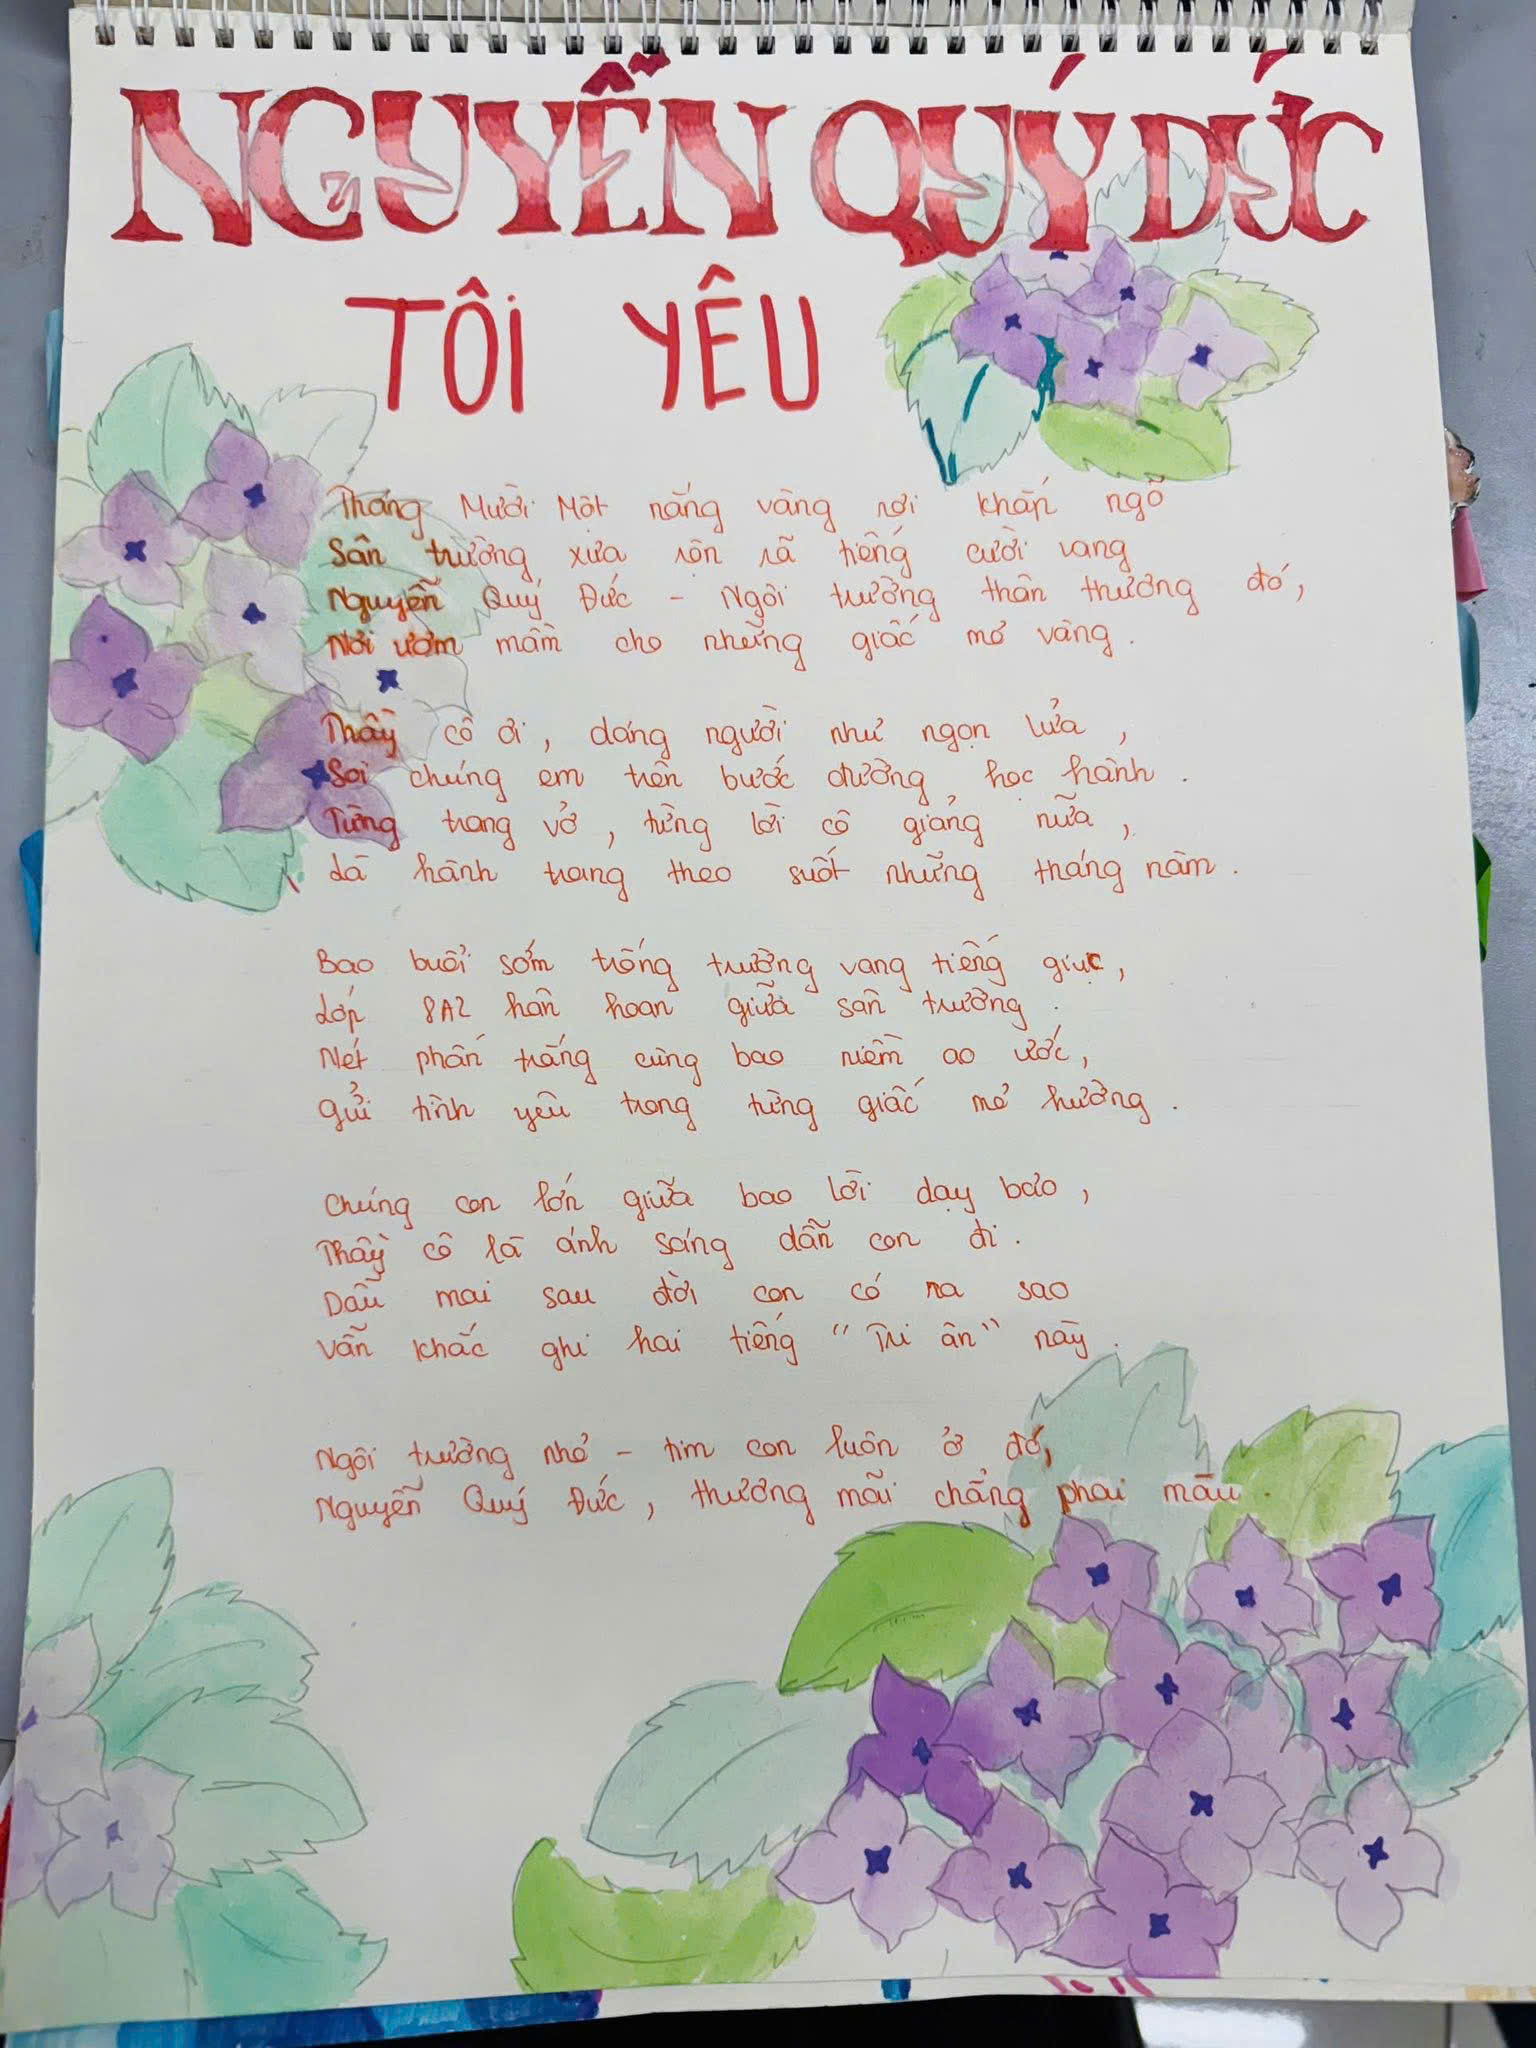 NGUYỄN QUÝ ĐỨC
TÔI YÊU
Tháng Mười Một nắng vàng rơi khắp ngõ
Sân trường xưa rộn rã tiếng cười vang
Nguyễn Quý Đức - Ngôi trường thân thương đó,
Nơi ươm mầm cho những giấc mơ vàng.
Thầy cô ơi, dáng người như ngọn lửa,
Soi chúng em trên bước đường học hành.
Từng trang vở, từng lời cô giảng nữa,
Là hành trang theo suốt những tháng năm.
Bao buổi sớm trống trường vang tiếng giục,
Lớp 8A2 hân hoan giữa sân trường.
Nét phấn trắng cùng bao niềm ao ước,
Gửi tình yêu trong từng giấc mơ hường.
Chúng con lớn giữa bao lời dạy bảo,
Thầy cô là ánh sáng dẫn con đi.
Dẫu mai sau đời con có ra sao
Vẫn khắc ghi hai tiếng "Tri ân" này.
Ngôi trường nhỏ - tim con luôn ở đó,
Nguyễn Quý Đức, thương mãi chẳng phai màu.